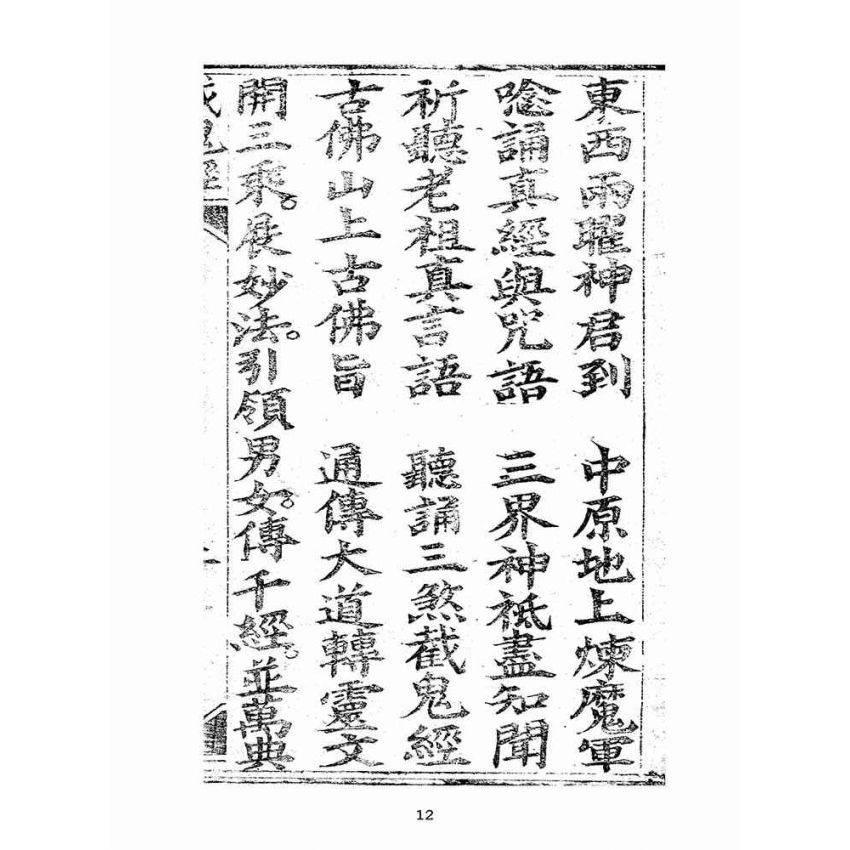 東西雨曜神君到 中原地上煉魔軍
唸誦真經與咒語 三界神祇盡知聞
祈聽老祖真言語 聽誦三煞截鬼經
古佛山上古佛旨 通傳大道轉靈文
開三乘。展妙法。引領男女。傳千經。並萬典
鬼經
12